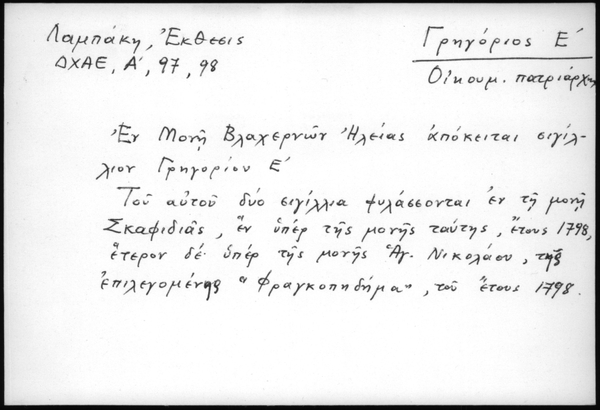 Λαμπάκη, Ἔκθεσις
ΔΧΑΕ, Α΄, 97, 98
Γρηγόριος Ε΄
Οἰκουμ. πατριάρχης
Ἐν Μονῇ Βλαχερνῶν Ἠλείας ἀπόκειται σιγίλ-
λιον Γρηγορίου Ε΄
Τοῦ αὐτοῦ δύο σιγίλλια φυλάσσονται ἐν τῇ μονῇ
Σκαφιδιᾶς, ἓν ὑπέρ τῆς μονῆς ταύτης, ἔτους 1798,
ἕτερον δέ ὑπέρ τῆς μονῆς Ἁγ. Νικολάου, τῆς
ἐπιλεγομένης "Φραγκοπηδήμα", τοῦ ἔτους 1798.